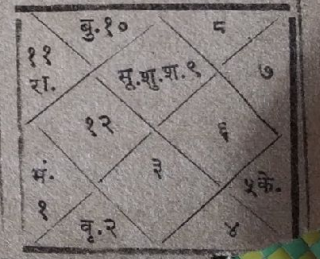 बु.१० ८
११
रा.
सू.शु.श.९
७
१२
६
३
मं.
१
५के.
वृ.२
४